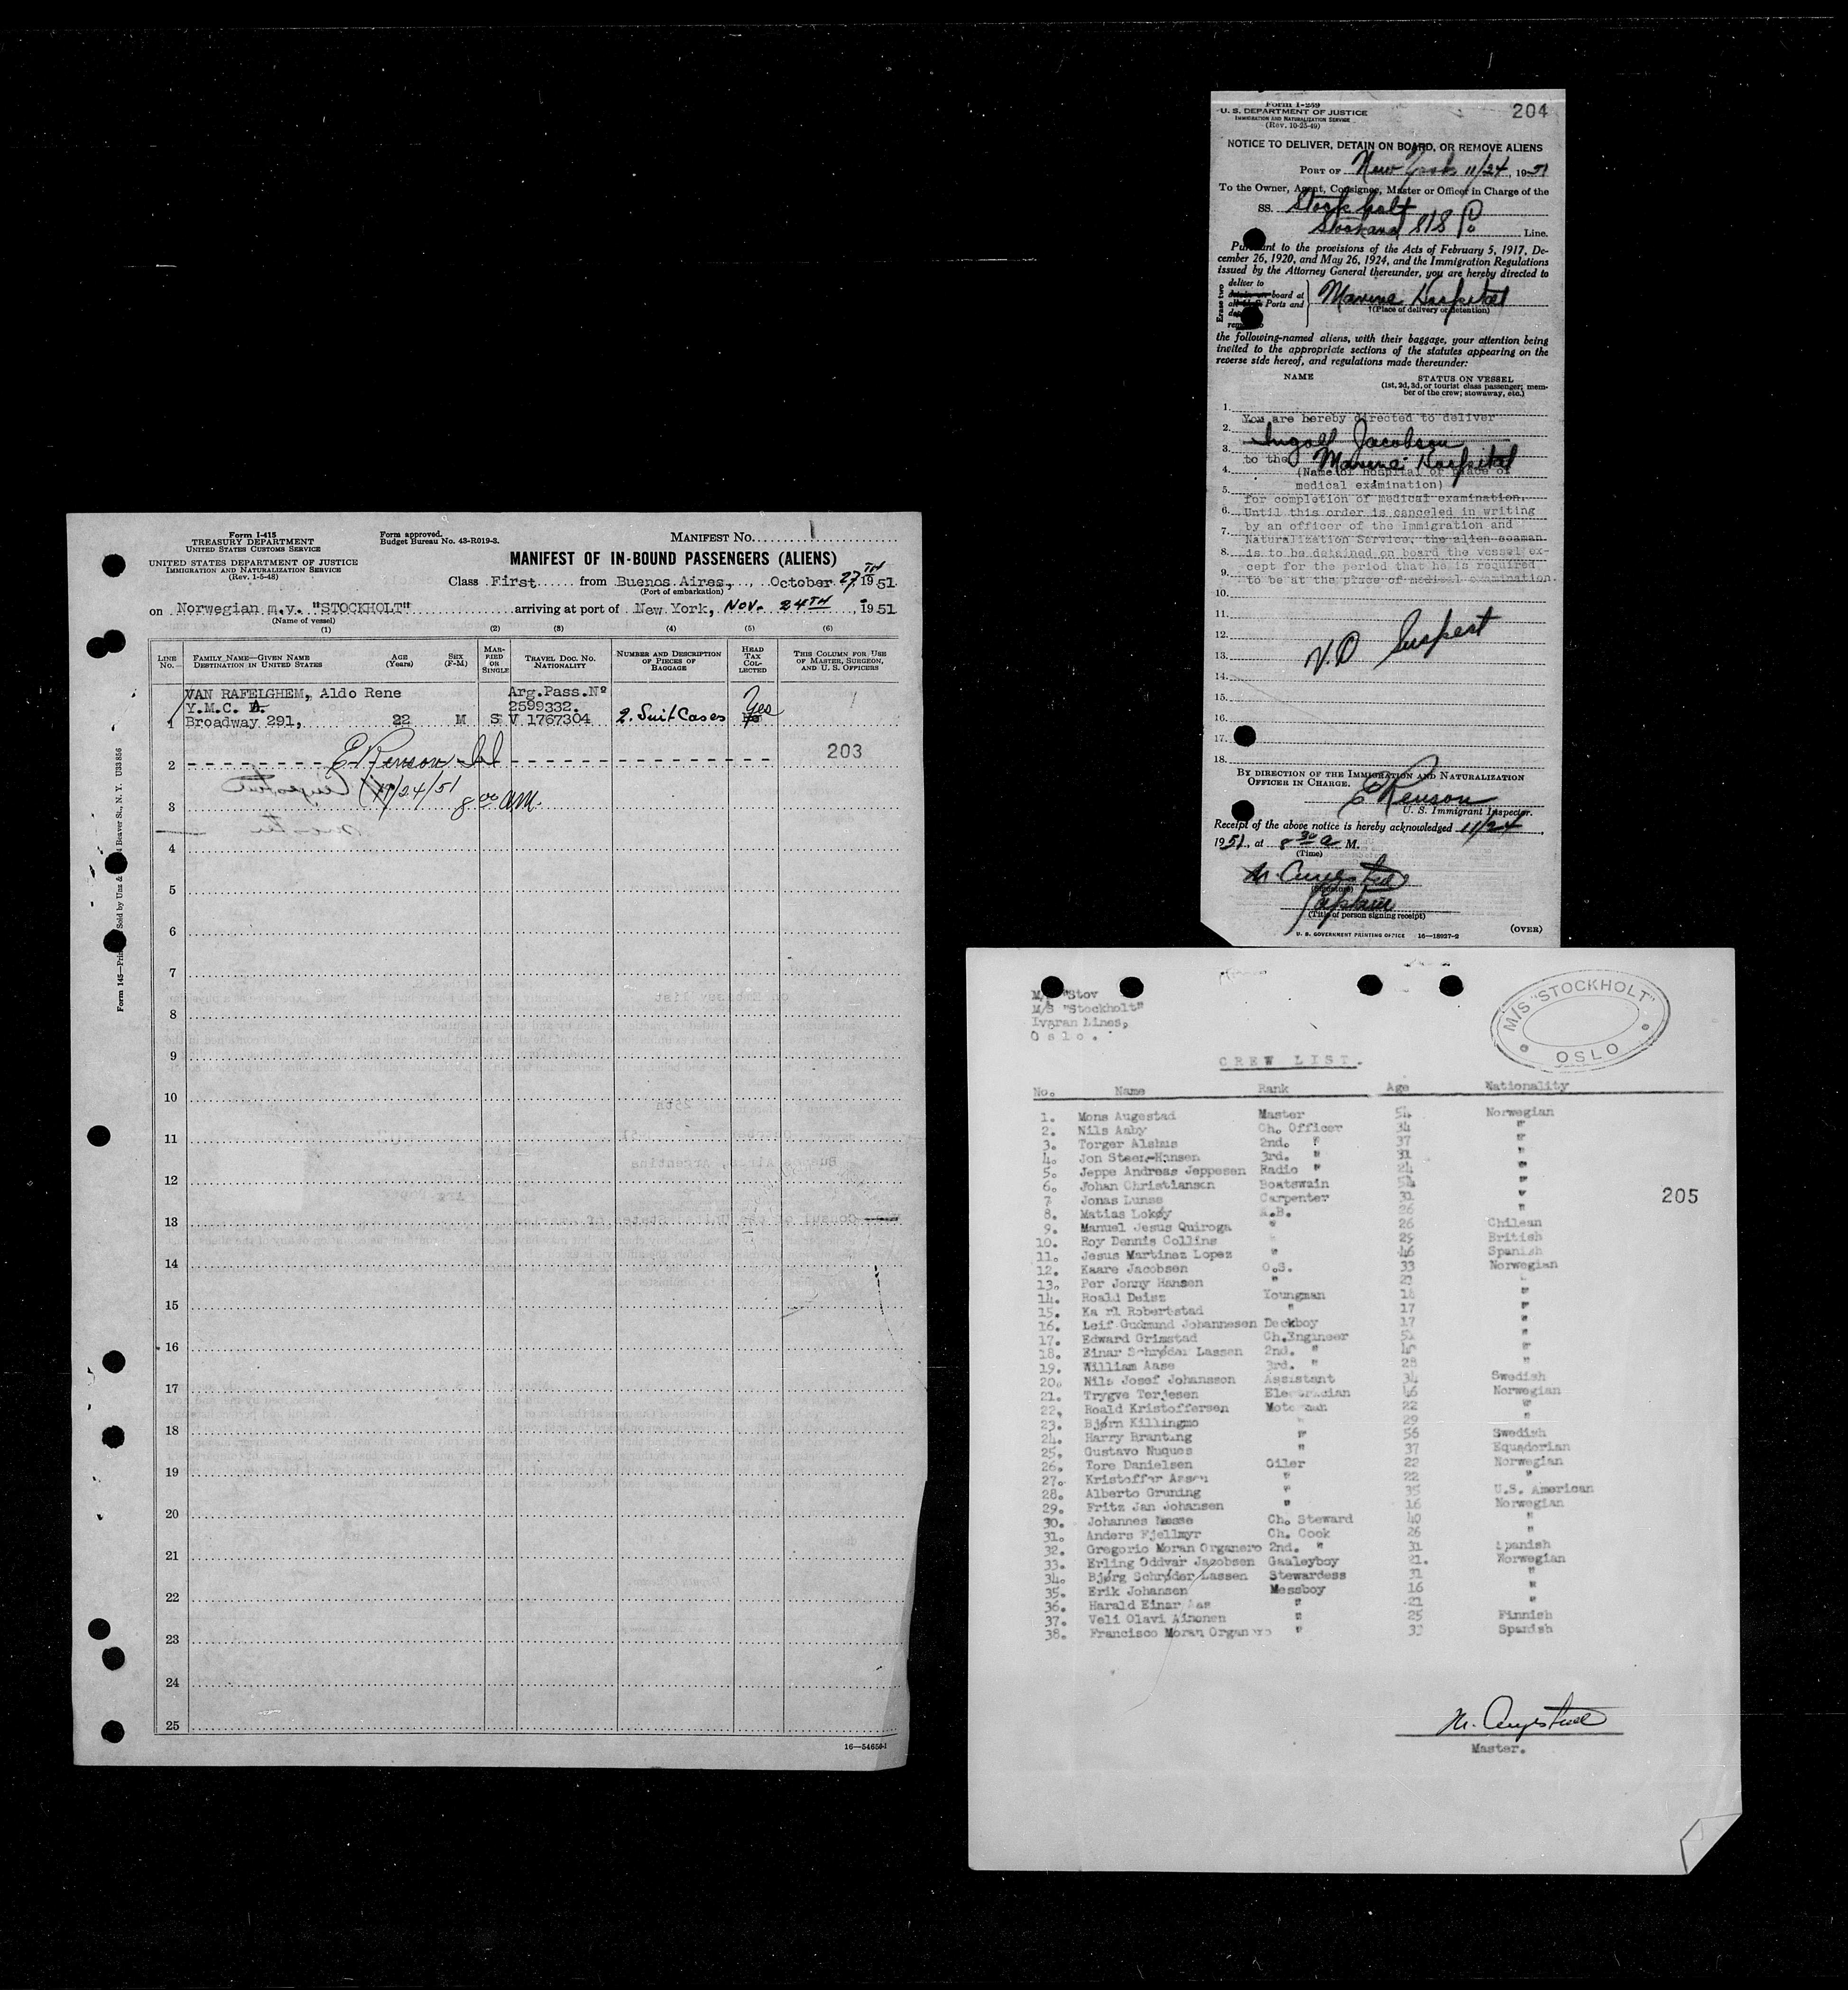 Form I-415
TREASURY DEPARTMENT
UNITED STATES CUSTOMS SERVICE
UNITED STATES DEPARTMENT OF JUSTICE
IMMIGRATION AND NATURALIZATION SERVICE
(Rev. 1-5-48)
Form approved.
Budget Bureau No. 43-R019-3.
MANIFEST NO. 1
MANIFEST OF IN-BOUND PASSENGERS (ALIENS)
Class First from Buenos Aires, October 27TH 1951
(Port of embarkation)
on Norwegian m.v. "STOCKHOLT" arriving at port of New York, NOV. 24TH, 1951
(Name of vessel)
(1) (2) (3) (4) (5) (6)
LINE NO. FAMILY NAME—GIVEN NAME DESTINATION IN UNITED STATES AGE (Years) SEX (F-M) MARRIED OR SINGLE TRAVEL DOC. NO. NATIONALITY NUMBER AND DESCRIPTION OF PIECES OF BAGGAGE HEAD TAX COLLECTED THIS COLUMN FOR USE OF MASTER, SURGEON, AND U. S. OFFICERS
VAN RAFELGHEM, Aldo Rene Arg.Pass.Nº
Y.M.C. A. 2599332. Yes
1 Broadway 291, 22 M S V 1767304 2. Suit Cases
2 E Renson 203
11/24/51 8 00 AM.
3
4
5
6
7
8
9
10
11
12
13
14
15
16
17
18
19
20
21
22
23
24
25
16—54650-1
Form I-259
U. S. DEPARTMENT OF JUSTICE
IMMIGRATION AND NATURALIZATION SERVICE
(Rev. 10-25-49)
204
NOTICE TO DELIVER, DETAIN ON BOARD, OR REMOVE ALIENS
PORT OF New York 11/24, 1951
To the Owner, Agent, Consignee, Master or Officer in Charge of the
SS. Stockholt
Stockard S/S Co Line.
Pursuant to the provisions of the Acts of February 5, 1917, De-
cember 26, 1920, and May 26, 1924, and the Immigration Regulations
issued by the Attorney General thereunder, you are hereby directed to
Erase two
deliver to
board at
Ports and
Marine Hospital
†(Place of delivery or detention)
the following-named aliens, with their baggage, your attention being
invited to the appropriate sections of the statutes appearing on the
reverse side hereof, and regulations made thereunder:
NAME STATUS ON VESSEL
(1st, 2d, 3d, or tourist class passenger; mem-
ber of the crew; stowaway, etc.)
1.
You are hereby directed to deliver
2. Ingolf Jacobsen
3.
to the Marine Hospital
4. (Name of hospital or place of
medical examination)
5.
for completion of medical examination.
6. Until this order is canceled in writing
7. by an officer of the Immigration and
Naturalization Service, the alien seaman
8. is to be detained on board the vessel ex-
cept for the period that he is required
9. to be at the place of medical examination.
10.
11.
12.
13. V.D Suspect
14.
15.
16.
17.
18.
BY DIRECTION OF THE IMMIGRATION AND NATURALIZATION
OFFICER IN CHARGE.
E Renson
U. S. Immigrant Inspector.
Receipt of the above notice is hereby acknowledged 11/24,
1951, at 8 30 a M.
(Time)
M. Augestad
(Signature)
Captain
(Title of person signing receipt)
U. S. GOVERNMENT PRINTING OFFICE 16—18927-2 (OVER)
"Stov
M/S "Stockholt"
Ivaran Lines,
Oslo.
M/S "STOCKHOLT"
OSLO
CREW LIST.
No. Name Rank Age Nationality
1. Mons Augestad Master 54 Norwegian
2. Nils Aaby Ch. Officer 34 "
3. Torger Alshus 2nd. " 37 "
4. Jon Steen-Hansen 3rd. " 31 "
5. Jeppe Andreas Jeppesen Radio " 24 "
6. Johan Christiansen Boatswain "
7 Jonas Lunse Carpenter 31 "
8. Matias Lokøy A.B. 26 "
9. Manuel Jesus Quiroga " 26 Chilean
10. Roy Dennis Collins " 25 British
11. Jesus Martinez Lopez " 46 Spanish
12. Kaare Jacobsen O.S. 33 Norwegian
13. Per Jonny Hansen " "
14. Roald Deisz Youngman 18 "
15. Ka rl Robertstad " 17 "
16. Leif Gudmund Johannesen Deckboy 17 "
17. Edward Grimstad Ch.Engineer "
18. Einar Schrøder Lassen 2nd. " 40 "
19. William Aase 3rd. " 28 "
20. Nils Josef Johansson Assistant 34 Swedish
21. Trygve Terjesen Electrician 46 Norwegian
22. Roald Kristoffersen Motorman 22 "
23. Bjørn Killingmo " 29 "
24. Harry Branting " 56 Swedish
25. Gustavo Nuques " 37 Equadorian
26. Tore Danielsen Oiler 22 Norwegian
27. Kristoffer Assen " 22 "
28. Alberto Gruning " 35 U.S. American
29. Fritz Jan Johansen " 16 Norwegian
30. Johannes Nesse Ch. Steward 40 "
31. Anders Fjellmyr Ch. Cook 26 "
32. Gregorio Moran Organero 2nd. " 31 Spanish
33. Erling Oddvar Jacobsen Gaaleyboy 21. Norwegian
34. Bjørg Schrøder Lassen Stewardess 31 "
35. Erik Johansen Messboy 16 "
36. Harald Einar Aas " 21 "
37. Veli Olavi Ainonen " 25 Finnish
38. Francisco Moran Organero " 33 Spanish
205
M. Augestad
Master.